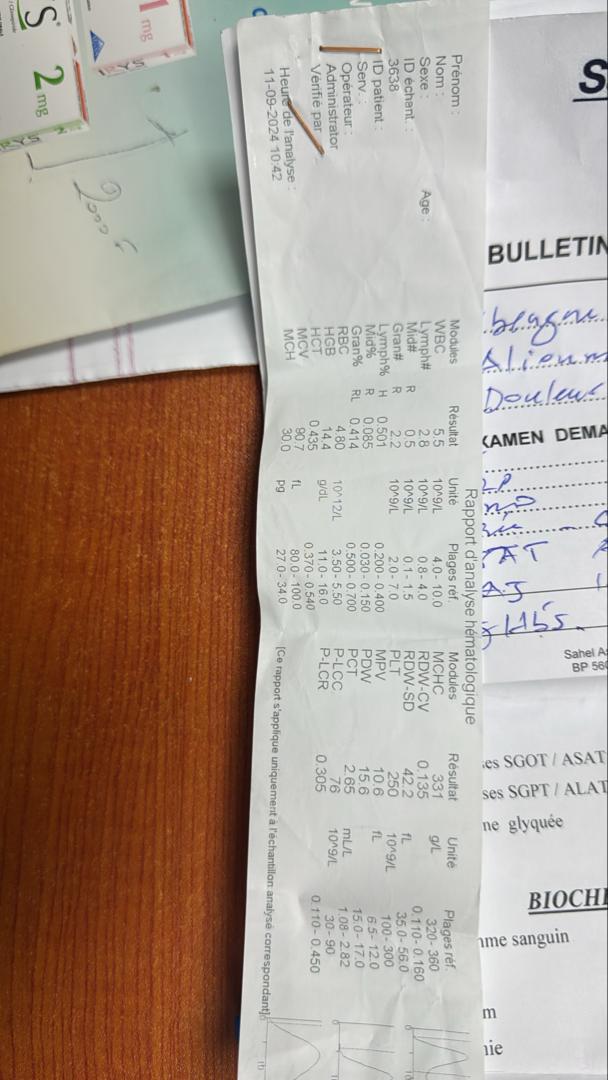 Rapport d'analyse hématologique
Prénom :
Nom :
Sexe : Age :
ID échant. :
3638
ID patient :
Serv. :
Opérateur :
Administrator
Vérifié par
Heure de l'analyse :
11-09-2024 10:42
Modules Résultat Unité Plages réf. Modules Résultat Unité Plages réf.
WBC 5.5 10^9/L 4.0- 10.0 MCHC 331 g/L 320- 360
Lymph# 2.8 10^9/L 0.8- 4.0 RDW-CV 0.135 0.110- 0.160
Mid# R 0.5 10^9/L 0.1- 1.5 RDW-SD 42.2 fL 35.0- 56.0
Gran# R 2.2 10^9/L 2.0- 7.0 PLT 250 10^9/L 100- 300
Lymph% H 0.501 0.200- 0.400 MPV 10.6 fL 6.5- 12.0
Mid% R 0.085 0.030- 0.150 PDW 15.6 15.0- 17.0
Gran% RL 0.414 0.500- 0.700 PCT 2.65 mL/L 1.08- 2.82
RBC 4.80 10^12/L 3.50- 5.50 P-LCC 76 10^9/L 30- 90
HGB 14.4 g/dL 11.0- 16.0 P-LCR 0.305 0.110- 0.450
HCT 0.435 0.370- 0.540
MCV 90.7 fL 80.0- 100.0
MCH 30.0 pg 27.0- 34.0
[Ce rapport s'applique uniquement à l'échantillon analysé correspondant]
BULLETIN
Douleur
KAMEN DEMA
TAT
Hbs.
Sahel A
BP 560
es SGOT / ASAT
ses SGPT / ALAT
ne glyquée
BIOCH
me sanguin
m
nie
S
2 mg
1 mg
2000